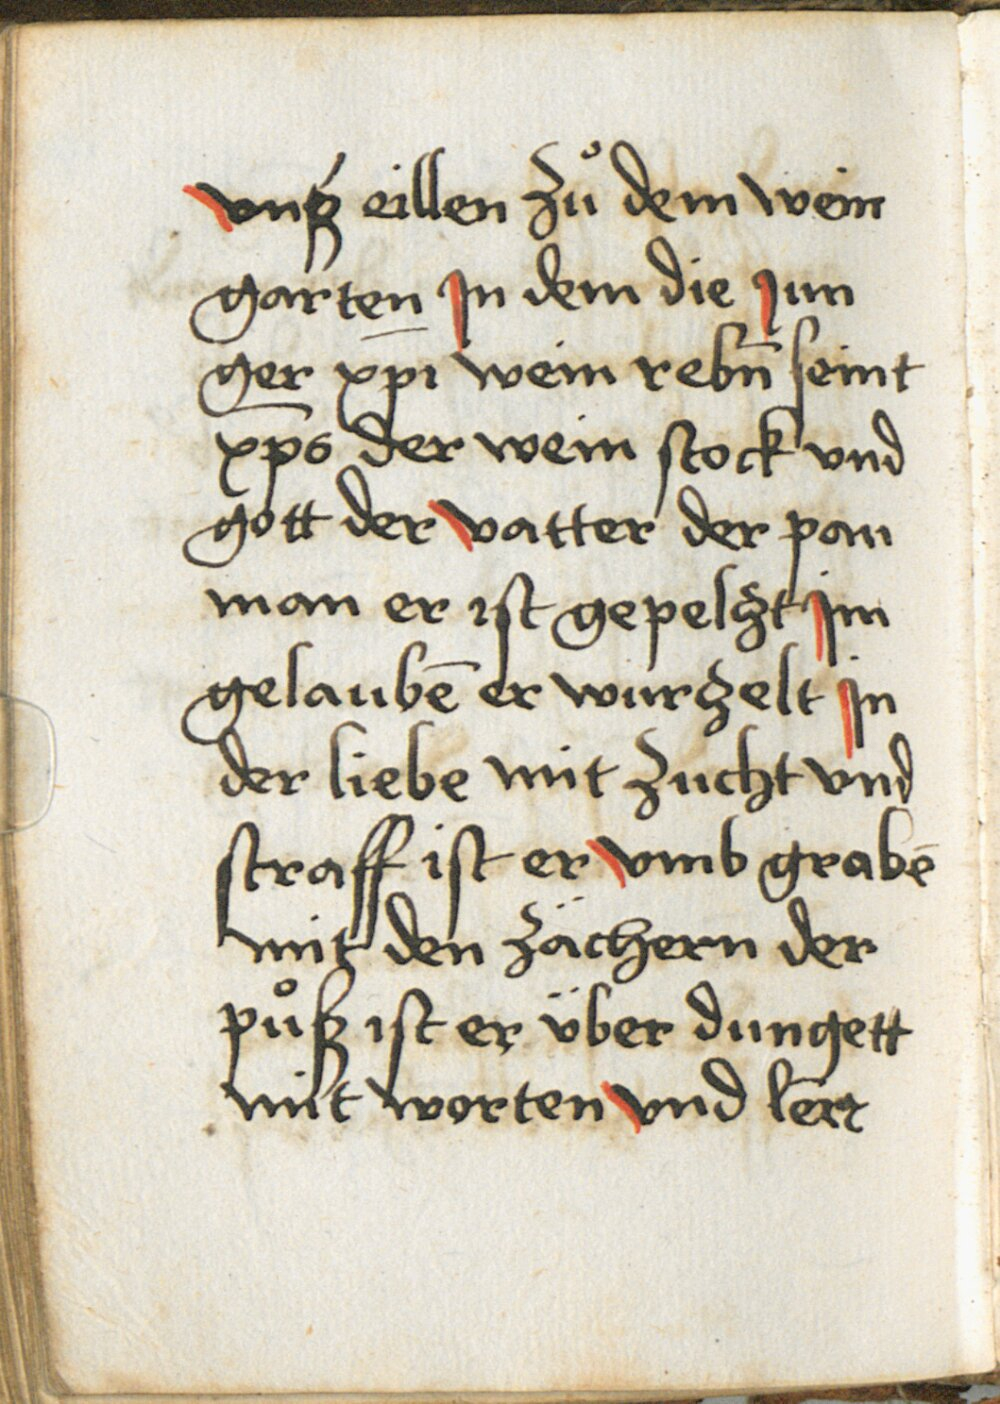 vnß eillen zů dem wein
garten Jn dem die jun
ger xp̄i wein rebn̄ seint
xp̄s der wein stock vnd
gott der vatter der pau
man er ist gepelzt jm
gelaubē er wurzelt jn
der liebe mit zucht vnd
straff ist er vmb grabē
mit den zächern der
půß ist er über dungett
mit worten vnd lerr